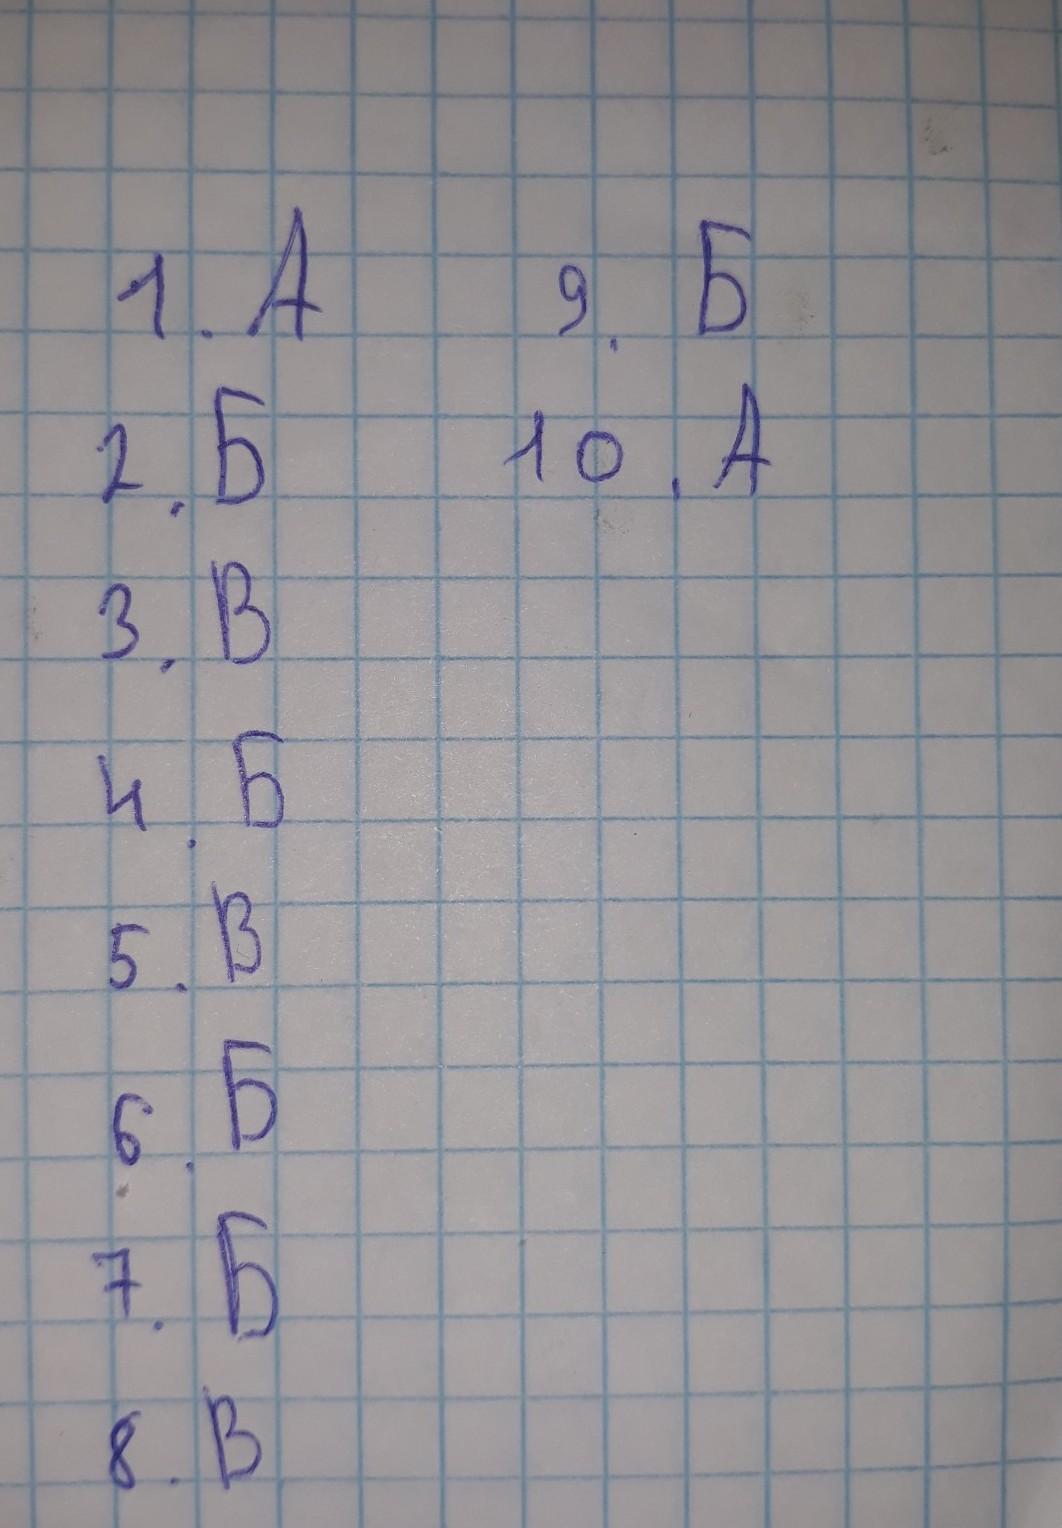 1. А
2. Б
3. В
4. Б
5. В
6. Б
7. Б
8. В
9. Б
10. А